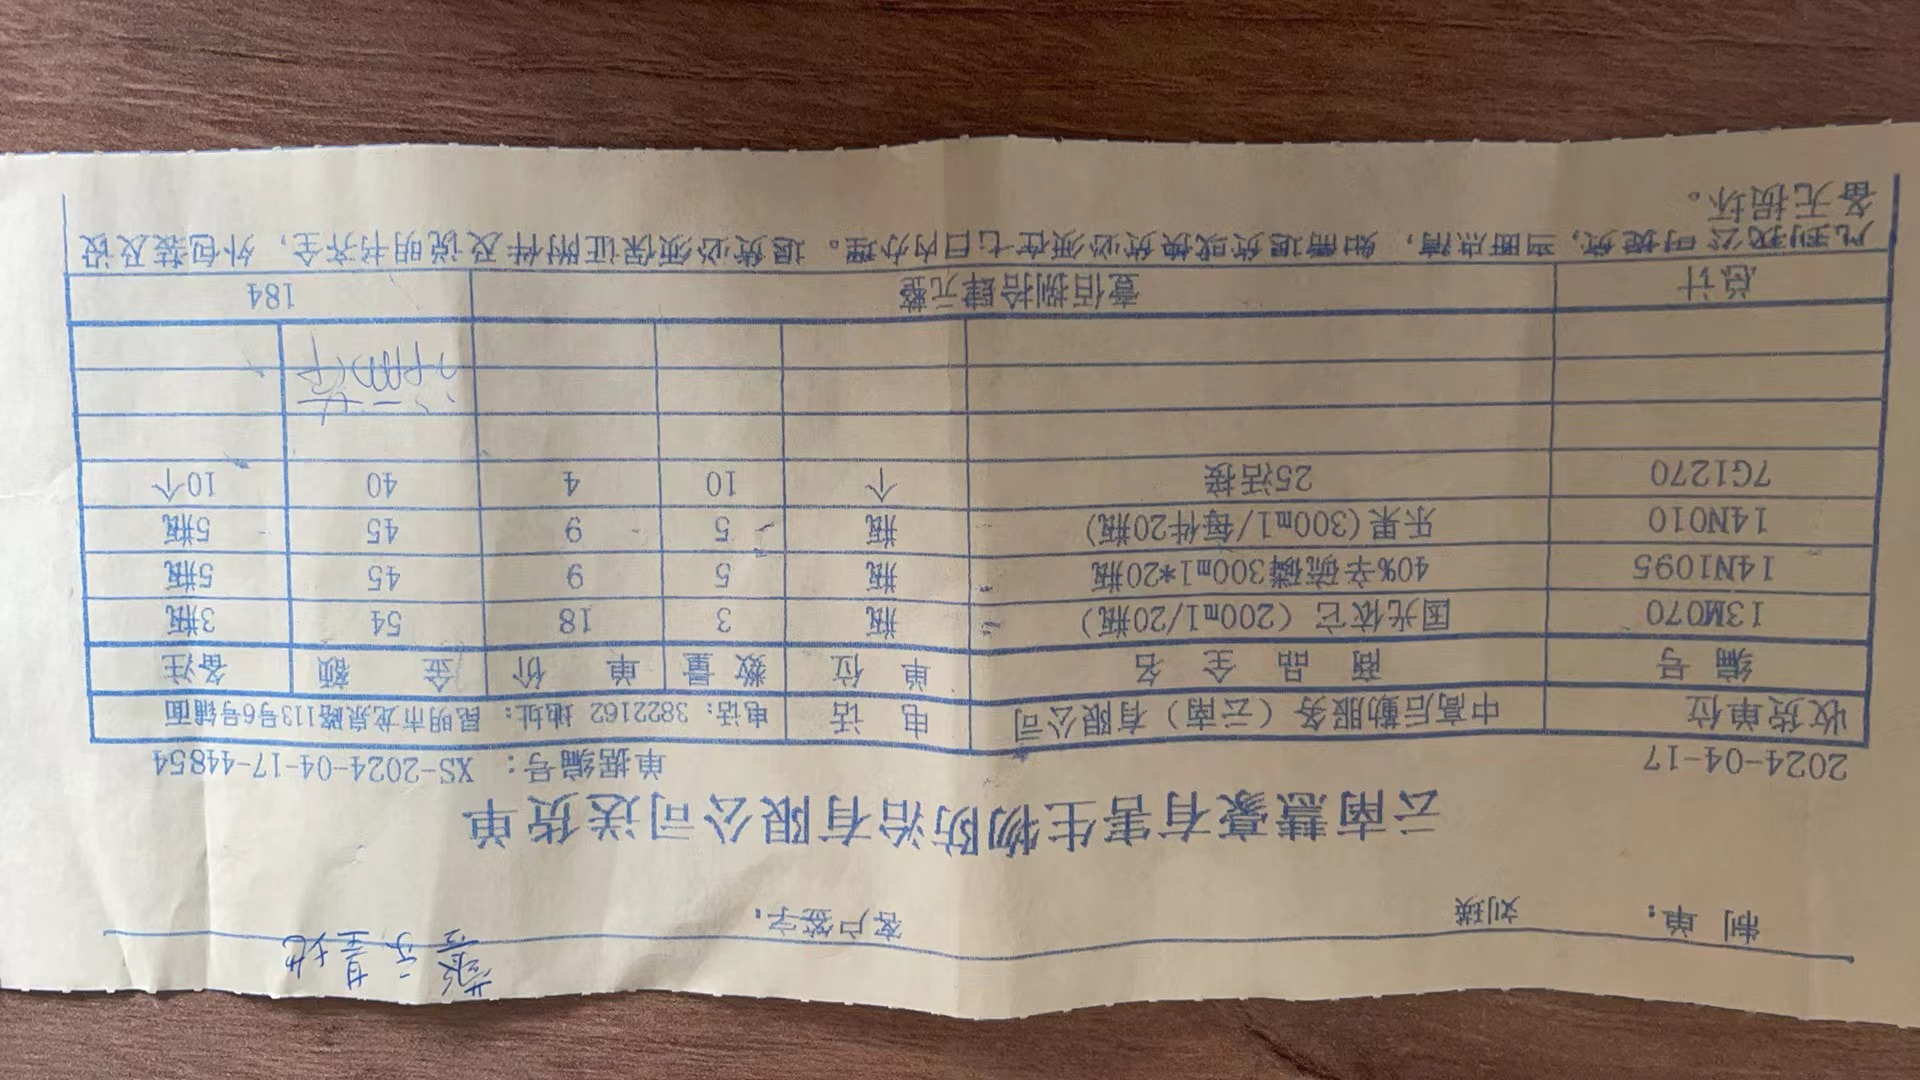 云南慧豪有害生物防治有限公司送货单
2024-04-17 单据编号: XS-2024-04-17-44854
收货单位 中高后勤服务（云南）有限公司 电 话 电话: 3822162 地址: 昆明市龙泉路113号6号铺面
编 号 商 品 全 名 单 位 数 量 单 价 金 额 备注
13M070 国光依它（200ml/20瓶） 瓶 3 18 54 3瓶
14N1095 40%辛硫磷300ml*20瓶 瓶 5 9 45 5瓶
14N010 乐果(300ml/每件20瓶) 瓶 5 9 45 5瓶
7G1270 25活接 个 10 4 40 10个
总计 壹佰捌拾肆元整 184
凡到我公司提货，当面点清，如需退货或换货必须在七日内办理。退货必须保证附件及说明书齐全，外包装及设
备无损坏。
制 单: 刘瑛 客户签字: